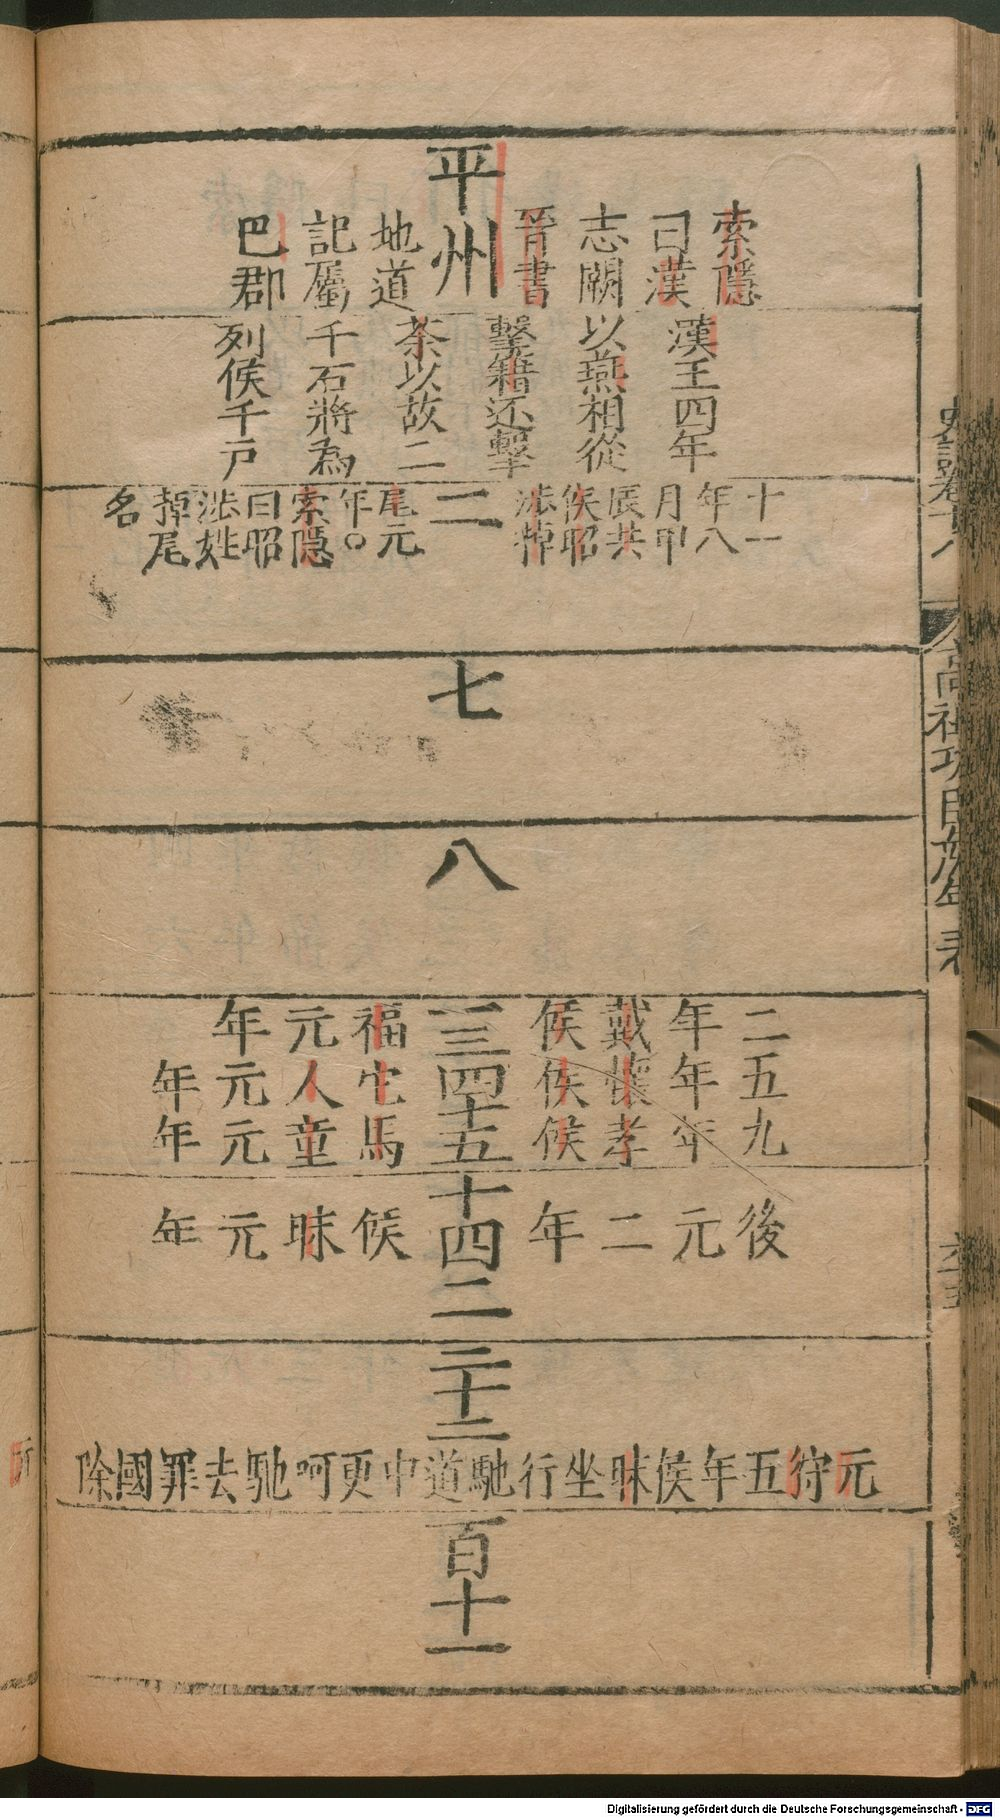 索隱
曰漢
志闕
晉書
平州
地道
記屬
巴郡
漢王四年
以燕相從
擊籍还擊
荼以故二
千石將為
列侯千戸
十一
年八
月甲
辰共
侯昭
涉掉
二
尾元
年○
索隱
曰昭
涉姓
掉尾
名
七
八
二五九
年年年
戴懷孝
侯侯侯
一三四十五
福它馬
元人童
年元元
年年
後
元
二
年
十四二
侯
昧
元
年
三十三
元狩五年侯昧坐行馳道中更呵馳去罪國除
百十一
高祖功臣侯年表
Digitalisierung gefördert durch die Deutsche Forschungsgemeinschaft - DFG